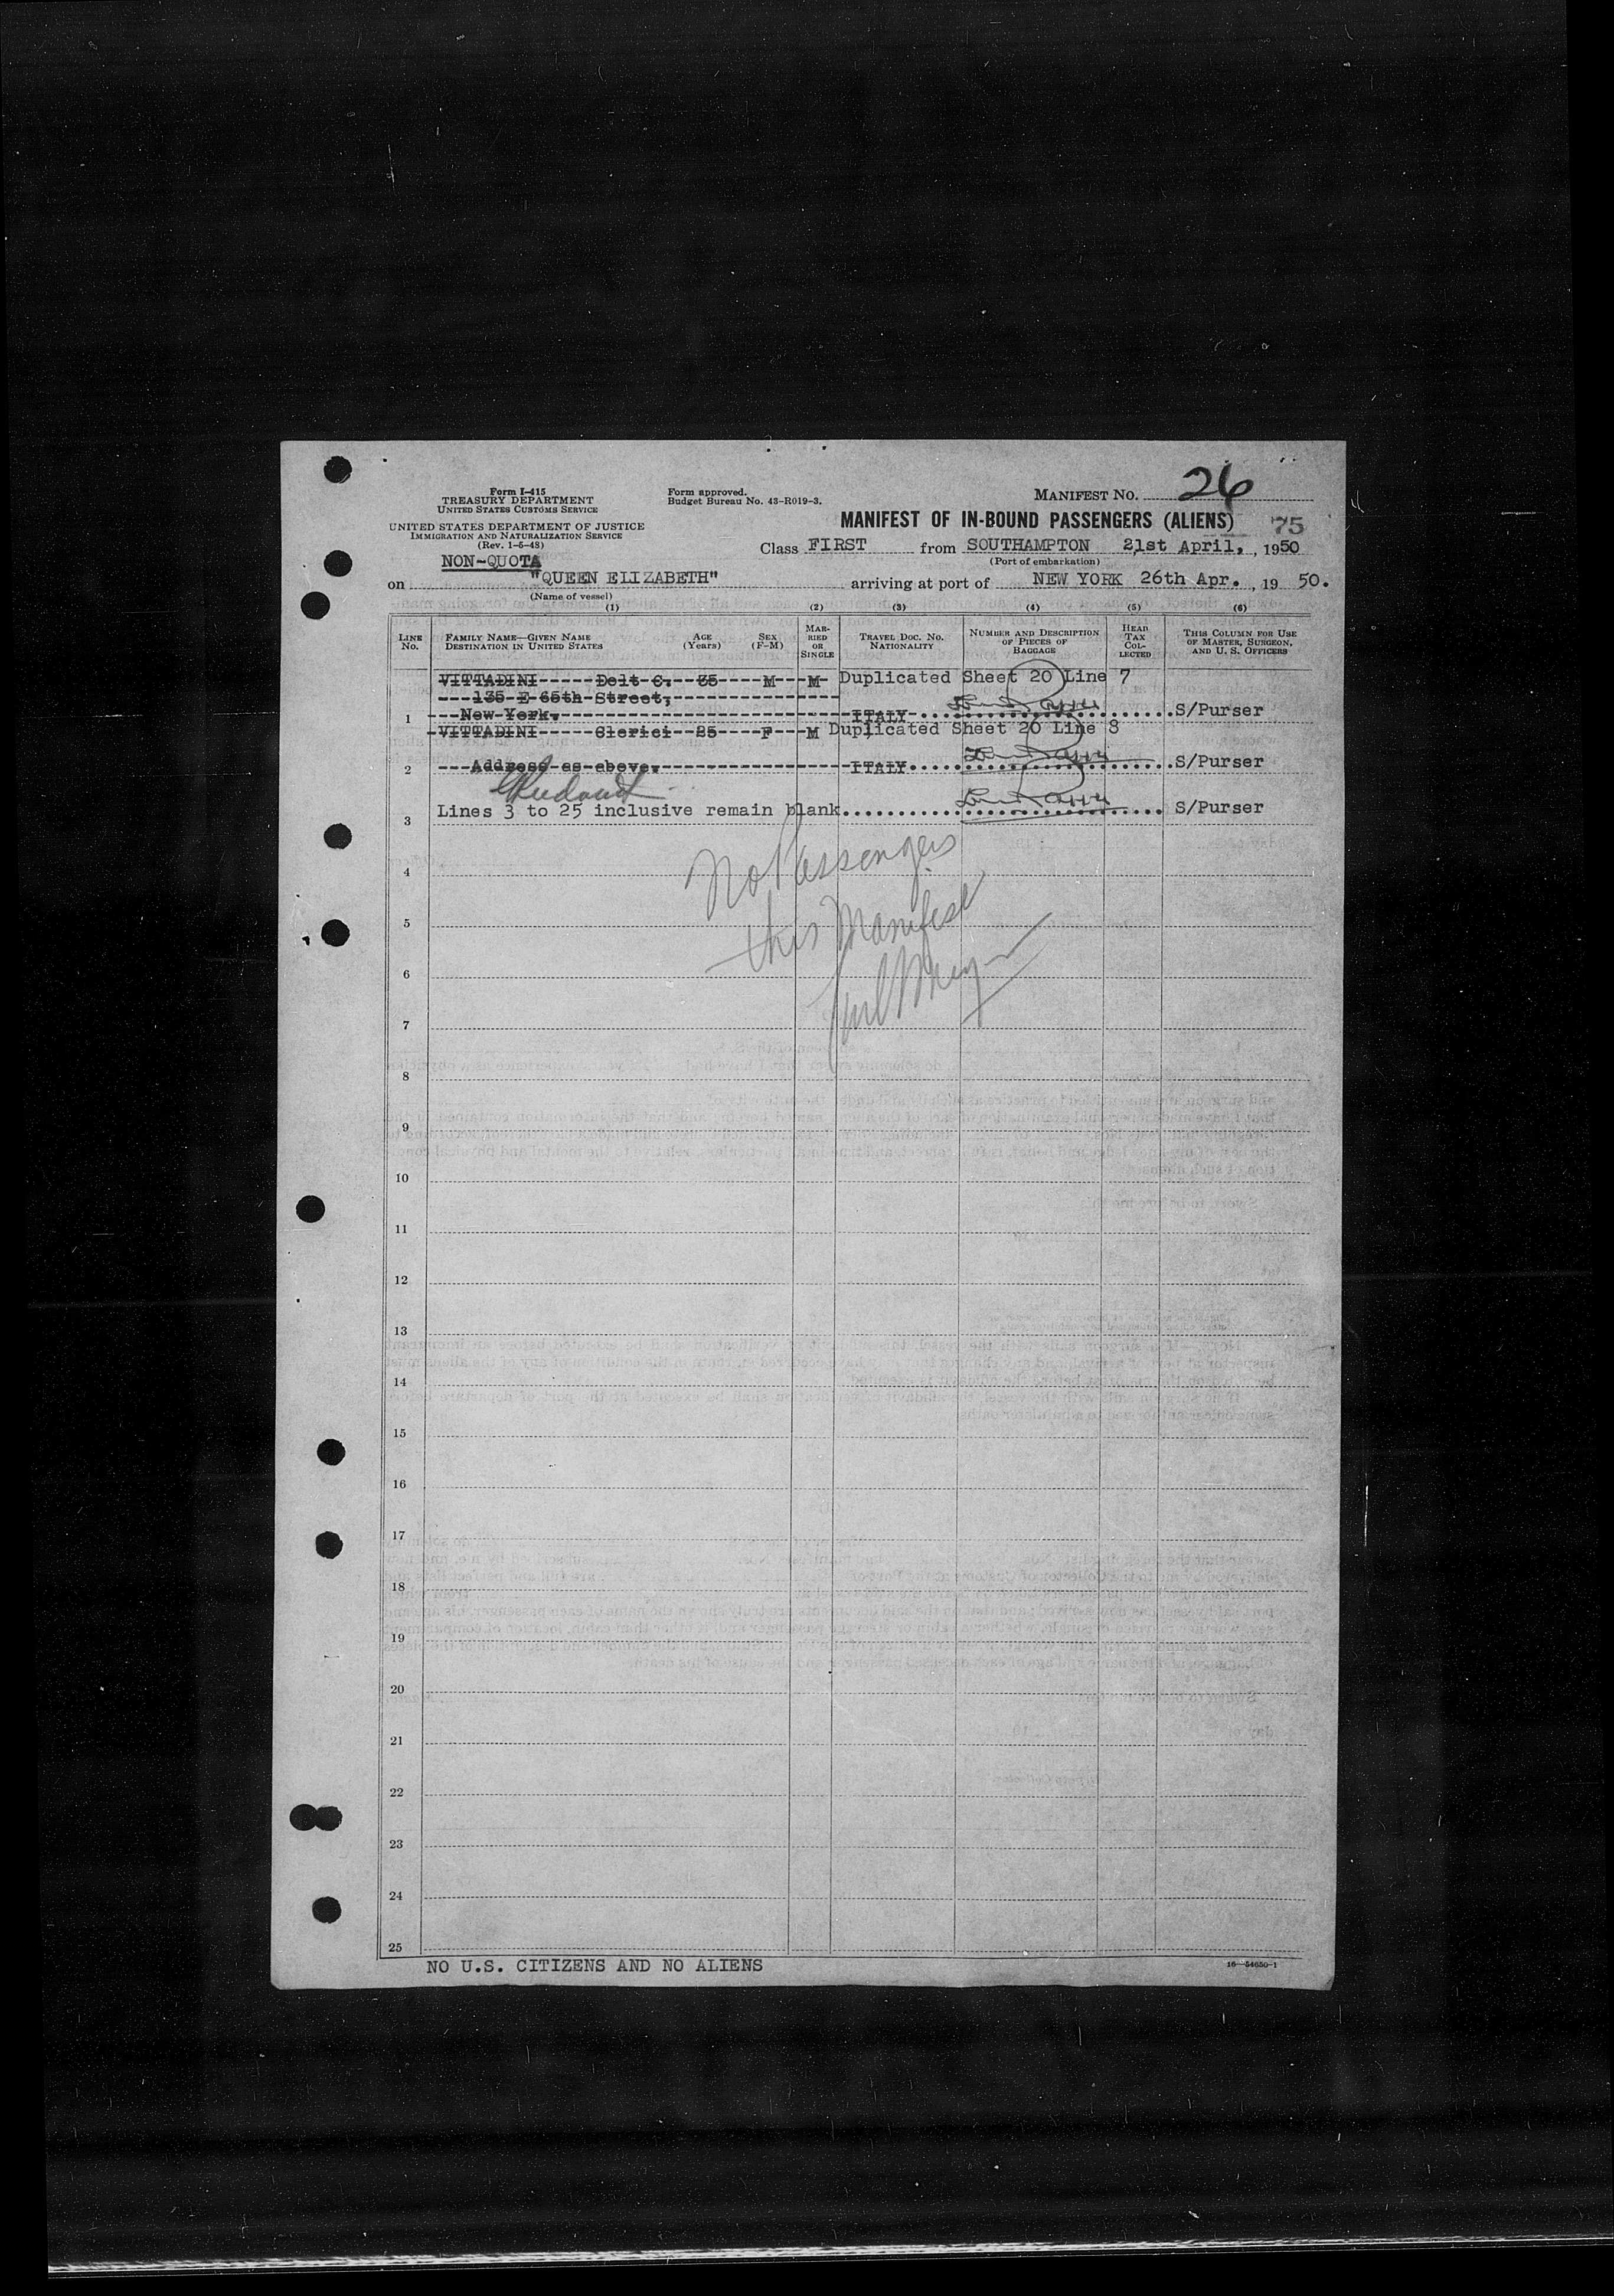 Form I-415
TREASURY DEPARTMENT
UNITED STATES CUSTOMS SERVICE
UNITED STATES DEPARTMENT OF JUSTICE
IMMIGRATION AND NATURALIZATION SERVICE
(Rev. 1-5-48)
Form approved.
Budget Bureau No. 43-R019-3.
MANIFEST NO. 26
MANIFEST OF IN-BOUND PASSENGERS (ALIENS) 75
Class FIRST from SOUTHAMPTON 21st April, , 1950
(Port of embarkation)
NON-QUOTA
on "QUEEN ELIZABETH" arriving at port of NEW YORK 26th Apr. , 19 50.
(Name of vessel)
(1) (2) (3) (4) (5) (6)
LINE NO. FAMILY NAME—GIVEN NAME DESTINATION IN UNITED STATES AGE (Years) SEX (F-M) MARRIED OR SINGLE TRAVEL DOC. NO. NATIONALITY NUMBER AND DESCRIPTION OF PIECES OF BAGGAGE HEAD TAX COLLECTED THIS COLUMN FOR USE OF MASTER, SURGEON, AND U. S. OFFICERS
VITTADINI-----Delt C.--35----M---M- Duplicated Sheet 20 Line 7
---135-E-65th-Street,
1 ---New-York. ITALY S/Purser
-VITTADINI-----Clerici--25----F---M Duplicated Sheet 20 Line 8
2 ---Address-as-above. ITALY S/Purser
3 Lines 3 to 25 inclusive remain blank S/Purser
No Passengers
this Manifest
4
5
6
7
8
9
10
11
12
13
14
15
16
17
18
19
20
21
22
23
24
25
NO U.S. CITIZENS AND NO ALIENS
16—54650-1